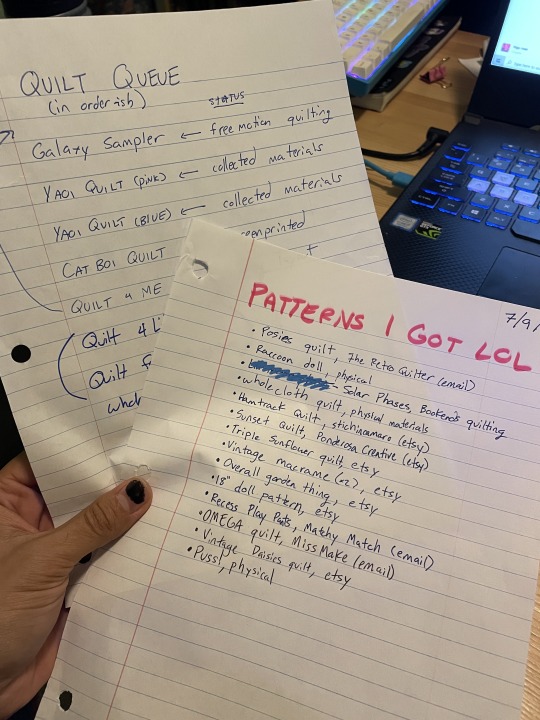 QUILT QUEUE
(in order ish)
STATUS
Galaxy Sampler ← free motion quilting
YAOI QUILT (PINK) ← collected materials
YAOI QUILT (BLUE) ← collected materials
CAT BOI QUILT eenprinted
QUILT 4 ME
Quilt 4 Li
Quilt F
what
PATTERNS I GOT LOL
7/9/
• Posies quilt, The Retro Quilter (email)
• Raccoon doll, physical
• Solar Phases, Bookends quilting
• wholecloth quilt, physical materials
• Hamtrack Quilt, stichincamaro (etsy)
• Sunset Quilt, Ponderosa Creative (etsy)
• Triple Sunflower quilt, etsy
• Vintage macrame (x2), etsy
• Overall garden thing, etsy
• 18" doll pattern, etsy
• Recess Play Pants, Matchy Match (email)
• OMEGA quilt, Miss Make (email)
• Vintage Daisies quilt, etsy
• Puss!, physical